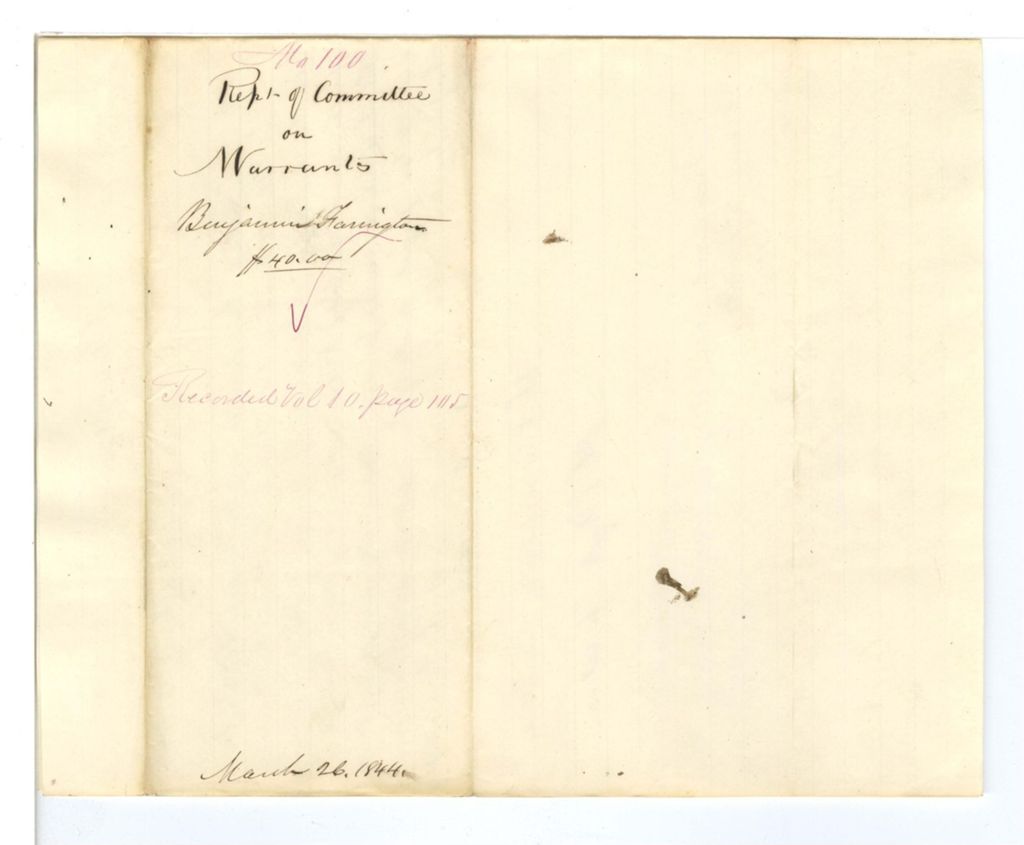 No 100
Rept of Committee
on
Warrants
Benjamin Farrington
$40.00
Recorded Vol 10. page 105
March 26. 1844.